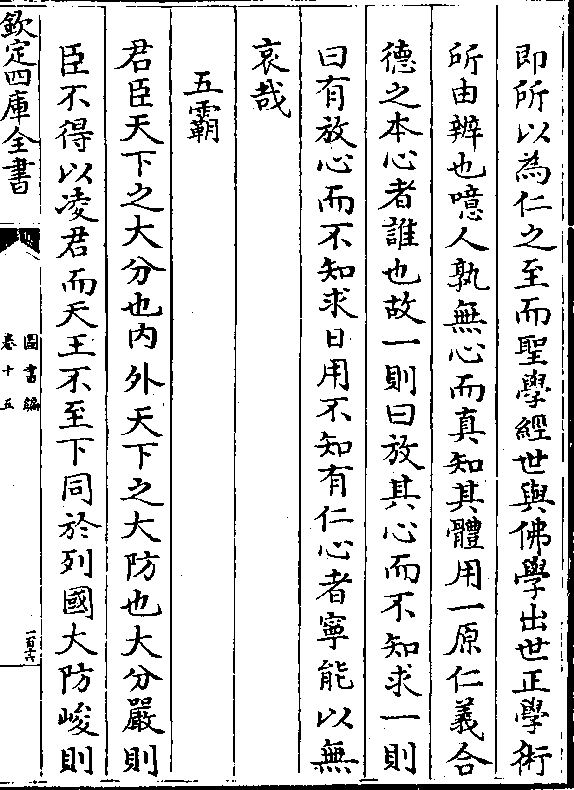 即所以為仁之至而聖學經世與佛學出世正學術
所由辨也噫人孰無心而真知其體用一原仁義合
德之本心者誰也故一則曰放其心而不知求一則
曰有放心而不知求日用不知有仁心者寧能以無
哀哉
五霸
君臣天下之大分也内外天下之大防也大分嚴則
臣不得以凌君而天王不至下同於列國大防峻則
欽定四庫全書
圖書編
卷十五
一百十六